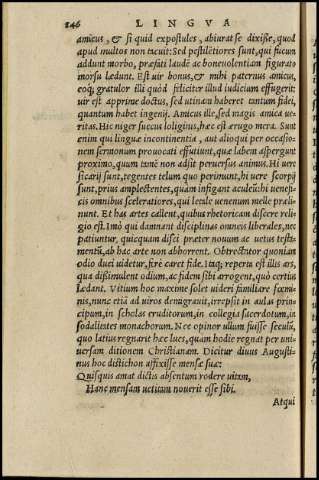 246 LINGVA
amicus, & si quid expostules, abiurat se dixisse, quod
apud multos non tacuit: Sed pestilētiores sunt, qui fucum
addunt morbo, præfati laudē ac beneuolentiam figurato
morsu lædunt. Est uir bonus, & mihi paternus amicus,
eoq; gratulor illi quòd feliciter illud iudicium effugerit:
uir est apprime doctus, sed utinam haberet tantum fidei,
quantum habet ingenij. Amicus ille, sed magis amica ue-
ritas. Hic niger succus loliginis, hæc est ærugo mera. Sunt
enim qui linguæ incontinentia, aut alioqui per occasio-
nem sermonum prouocati effutiunt, quæ labem aspergunt
proximo, quum tamē non adsit peruersus animus. Hi uere
sicarij sunt, tegentes telum quo perimunt, hi uere scorpij
sunt, prius amplectentes, quàm infigant aculeū: hi uenefi-
cis omnibus sceleratiores, qui letale uenenum melle præli-
nunt. Et has artes callent, quibus rhetoricam discere reli-
gio est. Imò qui damnant disciplinas omneis liberales, nec
patiuntur, quicquam disci præter nouum ac uetus testa-
mentū, ab hac arte non abhorrent. Obtrectator quoniam
odio duci uidetur, ferè caret fide. Itaq; reperta est illis ars,
qua dissimulent odium, ac fidem sibi arrogent, quò certius
lædant. Vitium hoc maxime solet uideri familiare fœmi-
nis, nunc etiā ad uiros demigrauit, irrepsit in aulas prin-
cipum, in scholas eruditorum, in collegia sacerdotum, in
sodalitates monachorum. Nec opinor ullum fuisse seculū,
quo latius regnarit hæc lues, quàm hodie regnat per uni-
uersam ditionem Christianam. Dicitur diuus Augusti-
nus hoc distichon affixisse mensæ suæ:
Quisquis amat dictis absentum rodere uitam,
Hanc mensam uetitam nouerit esse sibi.
Atqui